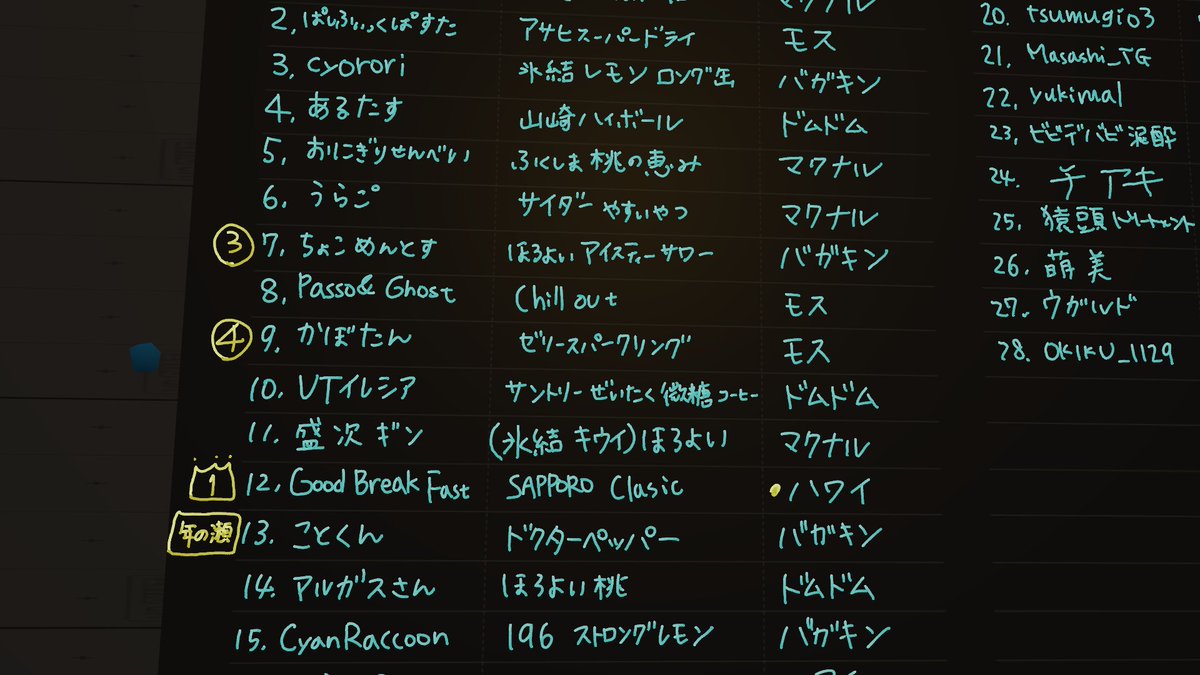 2. ぱしふぃっくぱすた アサヒスーパードライ モス
3. cyorori 氷結 レモン ロング缶 バガキン
4. あるたす 山崎ハイボール ドムドム
5. おにぎりせんべい ふくしま 桃の恵み マクナル
6. うらぴ サイダー やすいやつ マクナル
③ 7. ちょこめんとす ほろよい アイスティーサワー バガキン
8. Passo& Ghost Chill out モス
④ 9. かぼたん ゼリースパークリング モス
10. VTイレシア サントリー ぜいたく微糖コーヒー ドムドム
11. 盛次 ギン (氷結 キウイ)ほろよい マクナル
1 12. Good Break Fast SAPPORO Clasic ハワイ
年の瀬 13. ことくん ドクターペッパー バガキン
14. アルガスさん ほろよい 桃 ドムドム
15. CyanRaccoon 196 ストロングレモン バガキン
マクナル
20. tsumugi03
21. Masashi_TG
22. yukimal
23. ビビデバビ泥酔
24. チアキ
25. 猿頭トリートメント
26. 萌美
27. ウガルルド
28. OKIKU_1129